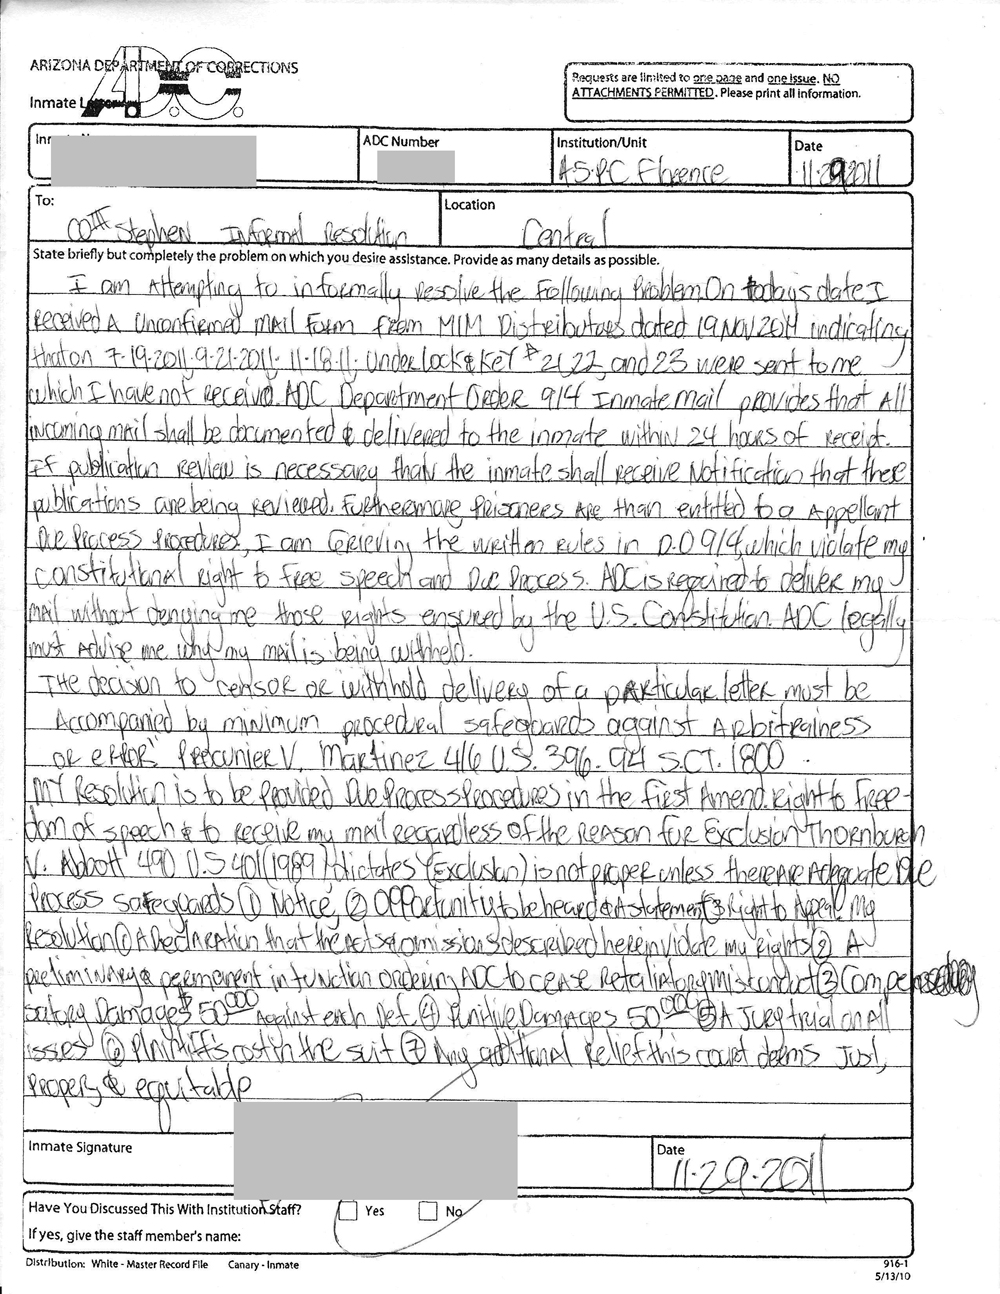 ARIZONA DEPARTMENT OF CORRECTIONS
ADC
Inmate Letter
Requests are limited to one page and one issue. NO
ATTACHMENTS PERMITTED. Please print all information.
ADC Number
Institution/Unit
Date
A.S.P.C. Florence
11-29-2011
To:
Location
COIII Stephen Informal Resolution
Central
State briefly but completely the problem on which you desire assistance. Provide as many details as possible.
I am Attempting to informally resolve the Following Problem. On todays date I
received A Unconfirmed mail Form from MIM Distributors dated 19 NOV 2011 indicating
that on 7-19-2011, 9-21-2011, 11-18-11, Under Lock & Key # 21, 22, and 23 were sent to me
which I have not received. ADC Department Order 914 Inmate mail provides that All
incoming mail shall be documented & delivered to the inmate within 24 hours of receipt.
If publication review is necessary than the inmate shall receive Notification that there
publications are being reviewed. Furthermore Prisoners are than entitled to a Appellant
Due Process Procedures, I am Grieving the written rules in D.O 914, which violate my
constitutional right to free speech and Due Process. ADC is required to deliver my
mail without denying me those rights ensured by the U.S. Constitution. ADC legally
must Advise me why my mail is being withheld.
"The decision to censor or withhold delivery of a particular letter must be
Accompanied by minimum procedural safeguards against Arbitrainess
or error" Procunier V. Martinez 416 U.S. 396. 94 S.CT. 1800.
My Resolution is to be provided Due Process Procedures in the First Amend. Right to Free-
dom of speech & to receive my mail regardless of the reason for Exclusion "Thornburgh
V. Abbott" 490 U.S 401 (1989) dictates (Exclusion) is not proper unless there are Adequate Due
Process safeguards ① Notice, ② Opportunity to be heard & A statement ③ Right to Appeal. My
Resolution ① A Declaration that the Acts & omissions described herein violate my rights ② A
preliminary & permanent in function ordering ADC to cease retaliatory misconduct ③ Compen
satory Damages $50,000 Against each Def. ④ Punitive Damages 50,000 ⑤ A Jury trial on All
isses ⑥ Plaintiff's cost in the suit ⑦ Any additional Relief this court deems Just,
Proper, & equitable
Inmate Signature
Date
11-29-2011
Have You Discussed This With Institution Staff?
Yes
No
If yes, give the staff member's name:
Distribution: White - Master Record File Canary - Inmate
916-1
5/13/10